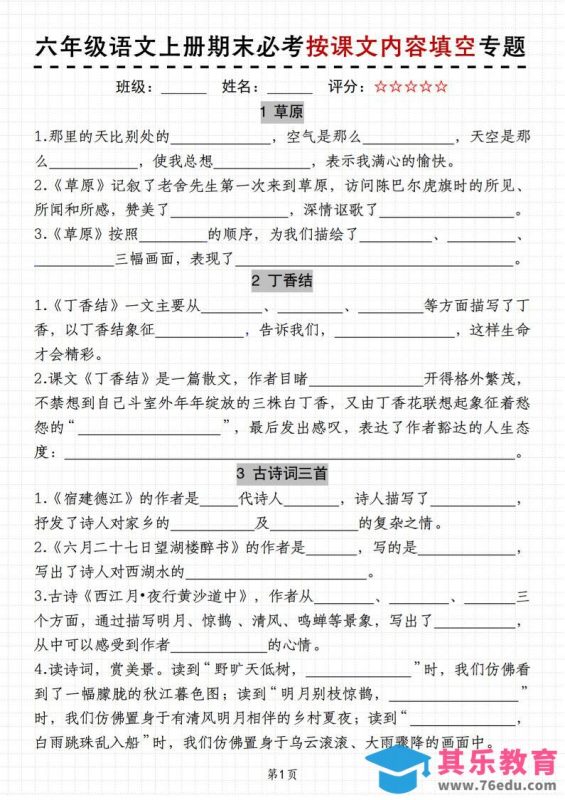 六年级语文上册期末必考按课文内容填空专题
班级：______ 姓名：______ 评分：☆☆☆☆☆
1 草原
1.那里的天比别处的____________，空气是那么___________，天空是那
么___________，使我总想____________，表示我满心的愉快。
2.《草原》记叙了老舍先生第一次来到草原，访问陈巴尔虎旗时的所见、
所闻和所感，赞美了______________，深情讴歌了________________。
3.《草原》按照________的顺序，为我们描绘了__________、_________、
_________三幅画面，表现了_________________________________。
2 丁香结
1.《丁香结》一文主要从_______、________、________等方面描写了丁
香，以丁香结象征__________，告诉我们，____________，这样生命
才会精彩。
2.课文《丁香结》是一篇散文，作者目睹______________开得格外繁茂，
不禁想到自己斗室外年年绽放的三株白丁香，又由丁香花联想起象征着愁
怨的“_________________”，最后发出感叹，表达了作者豁达的人生态
度：______________________________________________________。
3 古诗词三首
1.《宿建德江》的作者是_____代诗人_______，诗人描写了__________，
抒发了诗人对家乡的__________及__________的复杂之情。
2.《六月二十七日望湖楼醉书》的作者是_______，写的是___________，
写出了诗人对西湖水的______________________。
3.古诗《西江月•夜行黄沙道中》，作者从_______、_________、_______三
个方面，通过描写明月、惊鹊 、清风、鸣蝉等景象，写出了__________，
从中可以感受到作者___________的心情。
4.读诗词，赏美景。读到“野旷天低树，_____________”时，我们仿佛看
到了一幅朦胧的秋江暮色图；读到“明月别枝惊鹊，________________”
时，我们仿佛置身于有清风明月相伴的乡村夏夜；读到“_____________，
白雨跳珠乱入船”时，我们仿佛置身于乌云滚滚、大雨骤降的画面中。
第1页
其乐教育
www.76edu.com